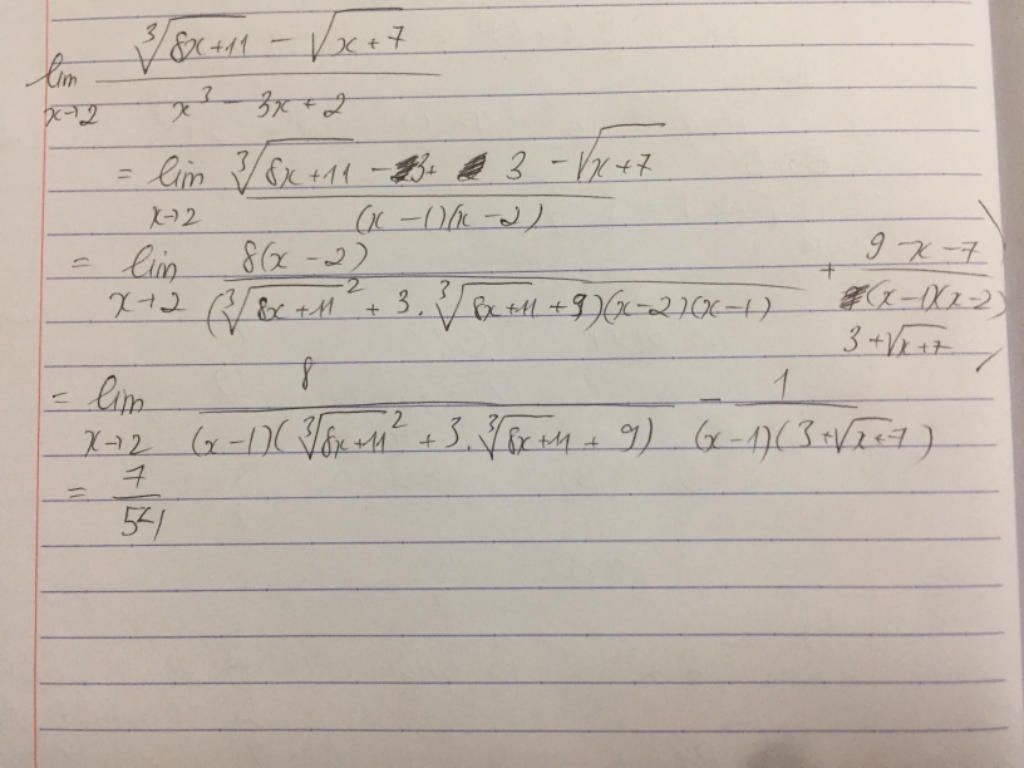 lim x→2 (∛(8x+11) − √(x+7)) / (x³ − 3x + 2)
= lim x→2 (∛(8x+11) − 3 + 3 − √(x+7)) / ((x−1)(x−2))
= lim x→2 8(x−2) / ((∛(8x+11)² + 3.∛(8x+11) + 9)(x−2)(x−1)) + (9−x−7) / ((x−1)(x−2) 3+√(x+7))
= lim x→2 8 / ((x−1)(∛(8x+11)² + 3.∛(8x+11) + 9)) − 1 / ((x−1)(3+√(x+7)))
= 7/54